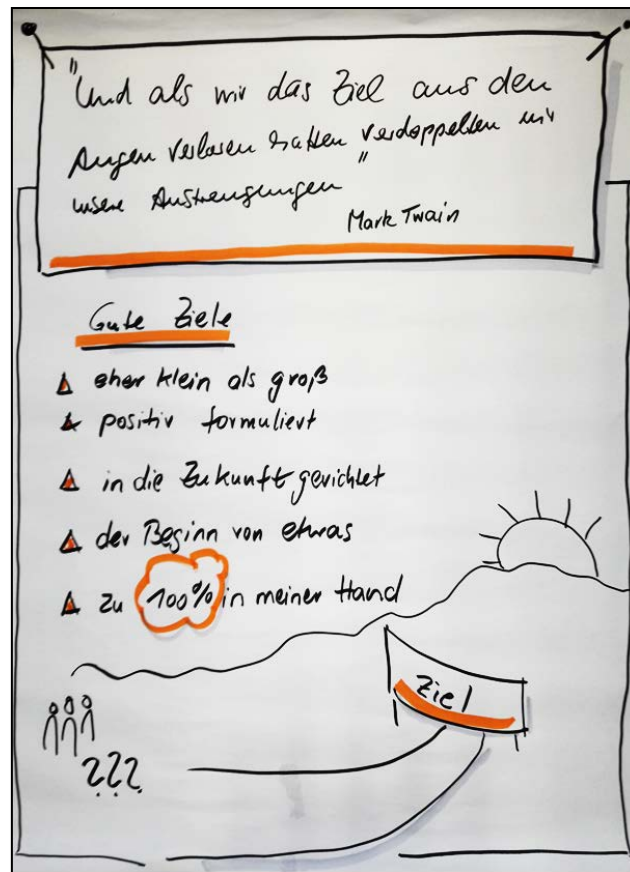 "Und als wir das Ziel aus den
Augen verloren hatten verdoppelten wir
unsere Anstrengungen"
Mark Twain
Gute Ziele
eher klein als groß
positiv formuliert
in die Zukunft gerichtet
der Beginn von etwas
zu 100% in meiner Hand
Ziel
???